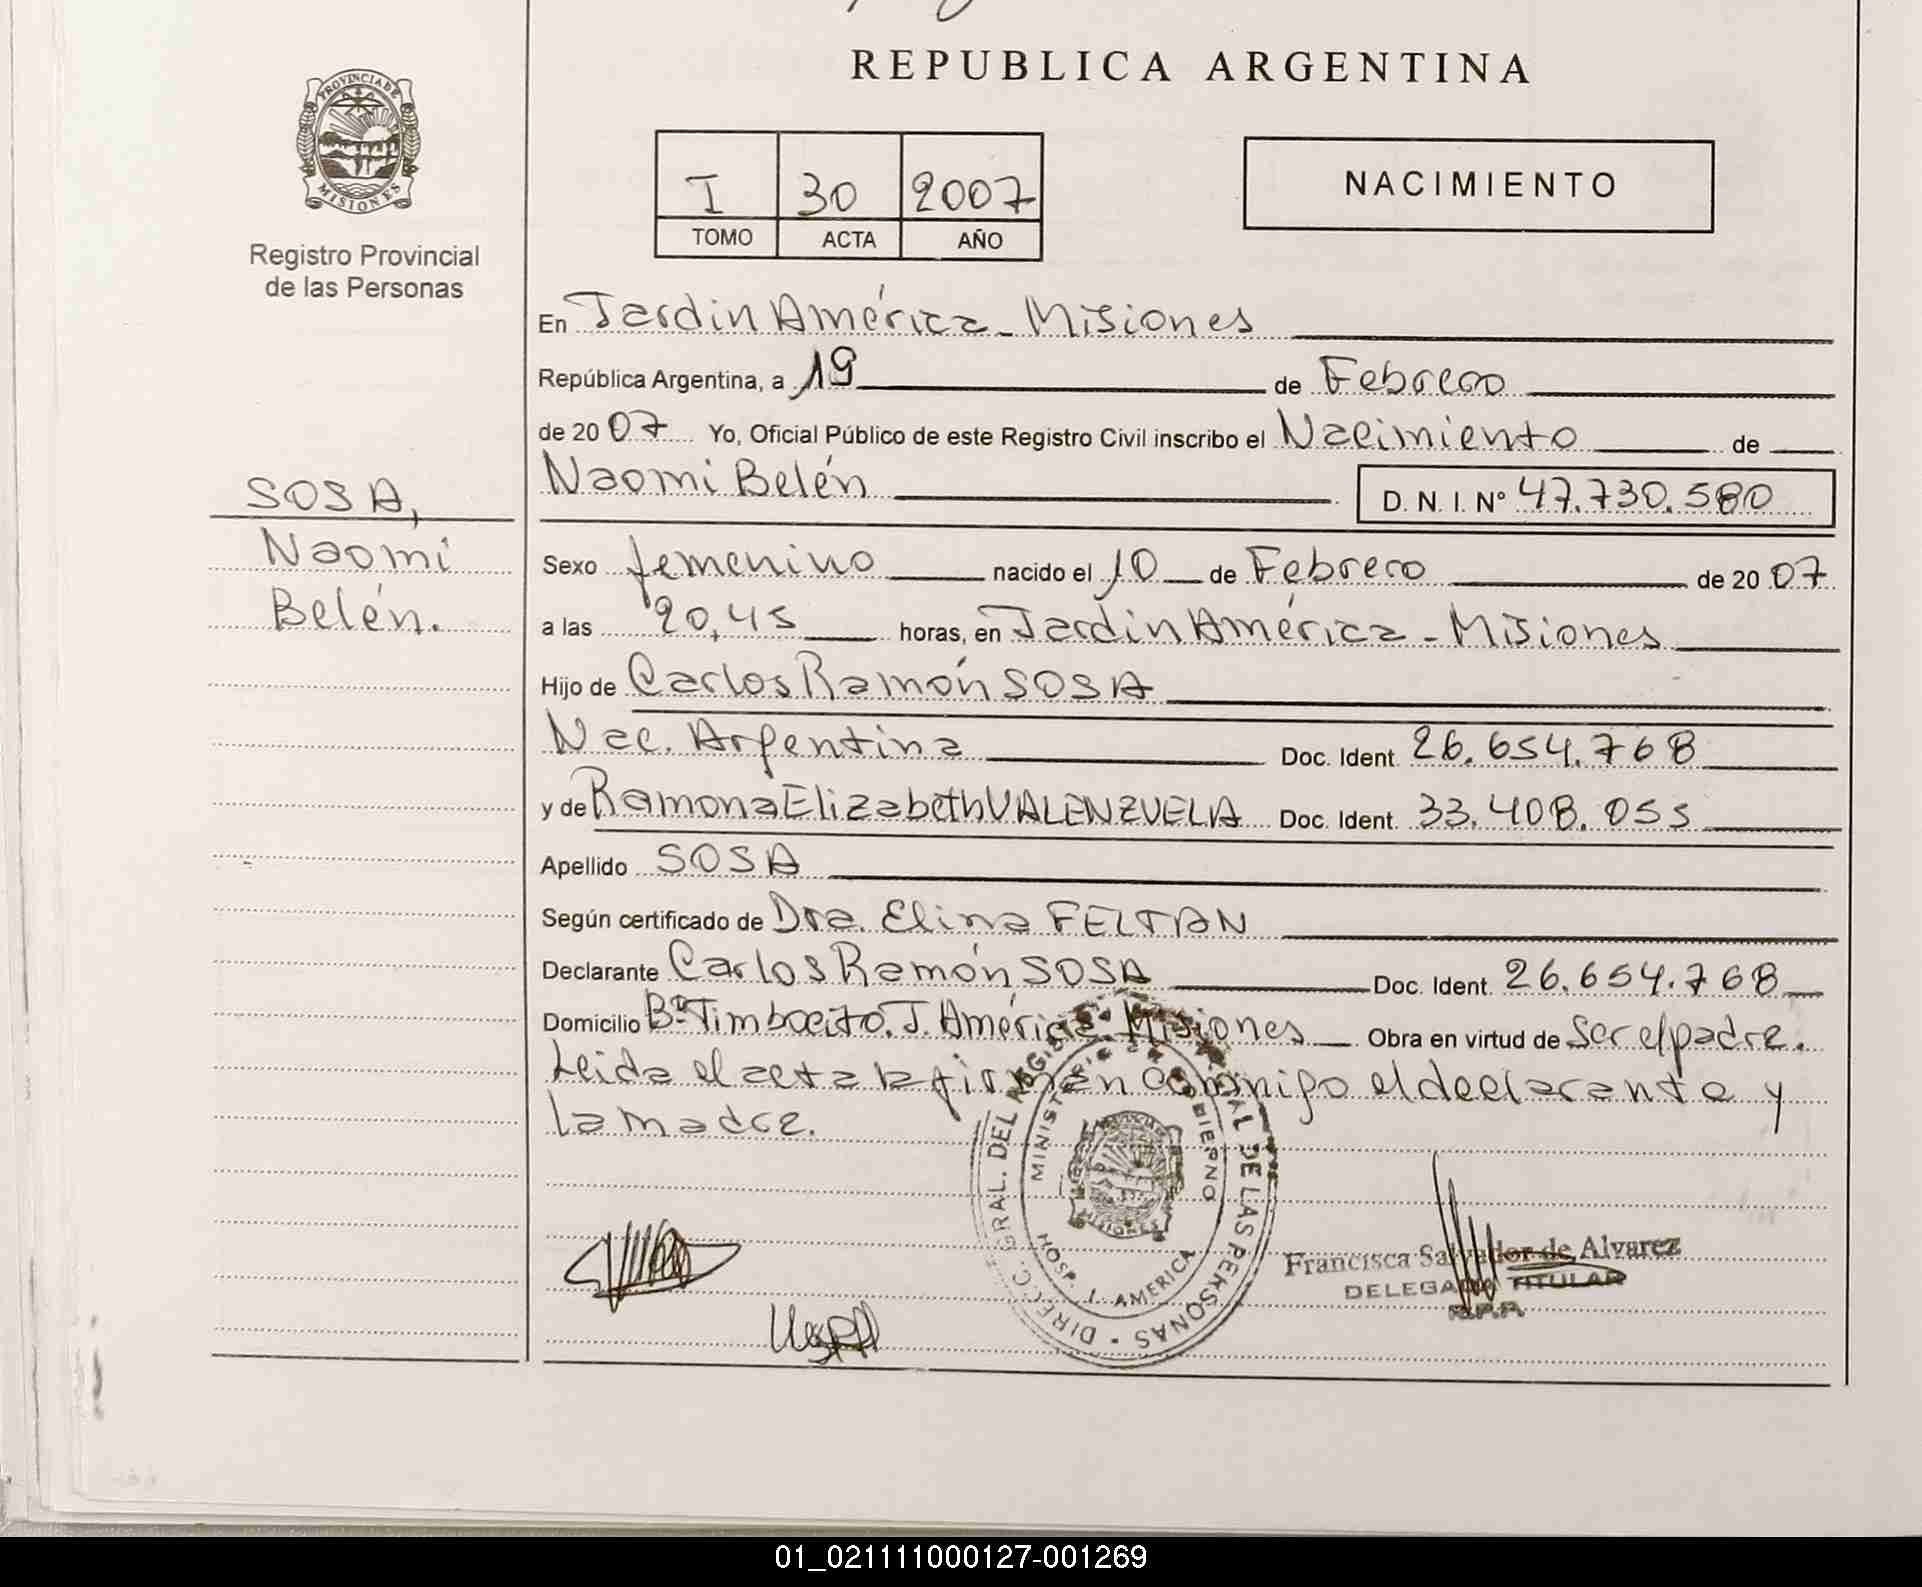 REPUBLICA ARGENTINA
PROVINCIA DE
MISIONES
Registro Provincial
de las Personas
I 30 2007
TOMO ACTA AÑO
NACIMIENTO
En Jardin América - Misiones
República Argentina, a 19 de Febrero
de 20 07 Yo, Oficial Público de este Registro Civil inscribo el Nacimiento de
Naomi Belén D. N. I. Nº 47.730.580
SOSA,
Naomi
Belén.
Sexo femenino nacido el 10 de Febrero de 20 07
a las 20,45 horas, en Jardin América - Misiones
Hijo de Carlos Ramón SOSA
Nac. Argentina Doc. Ident. 26.654.768
y de Ramona Elizabeth VALENZUELA Doc. Ident. 33.408.055
Apellido SOSA
Según certificado de Dra. Elina FELTAN
Declarante Carlos Ramón SOSA Doc. Ident. 26.654.768
Domicilio Bº Timbocito. J. América - Misiones Obra en virtud de Ser el padre.
Leida el acta la firman conmigo el declarante y
la madre.
DIRECC. GRAL. DEL REGISTRO DE LAS PERSONAS
GOBIERNO
HOSP. J. AMERICA
MISIONES
Francisca Salvador de Alvarez
DELEGADA TITULAR
R.P.P.
01_021111000127-001269